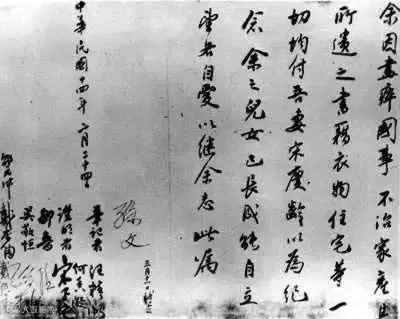 余因盡瘁國事不治家產其
所遺之書籍衣物住宅等一
切均付吾妻宋慶齡以為紀
念余之兒女已長成能自立
望各自愛以繼余志此屬
孫文
三月十一日補簽
中華民國十四年二月二十四
筆記者 汪精衛
證明者 宋子文
何香凝
鄒魯
吳敬恆